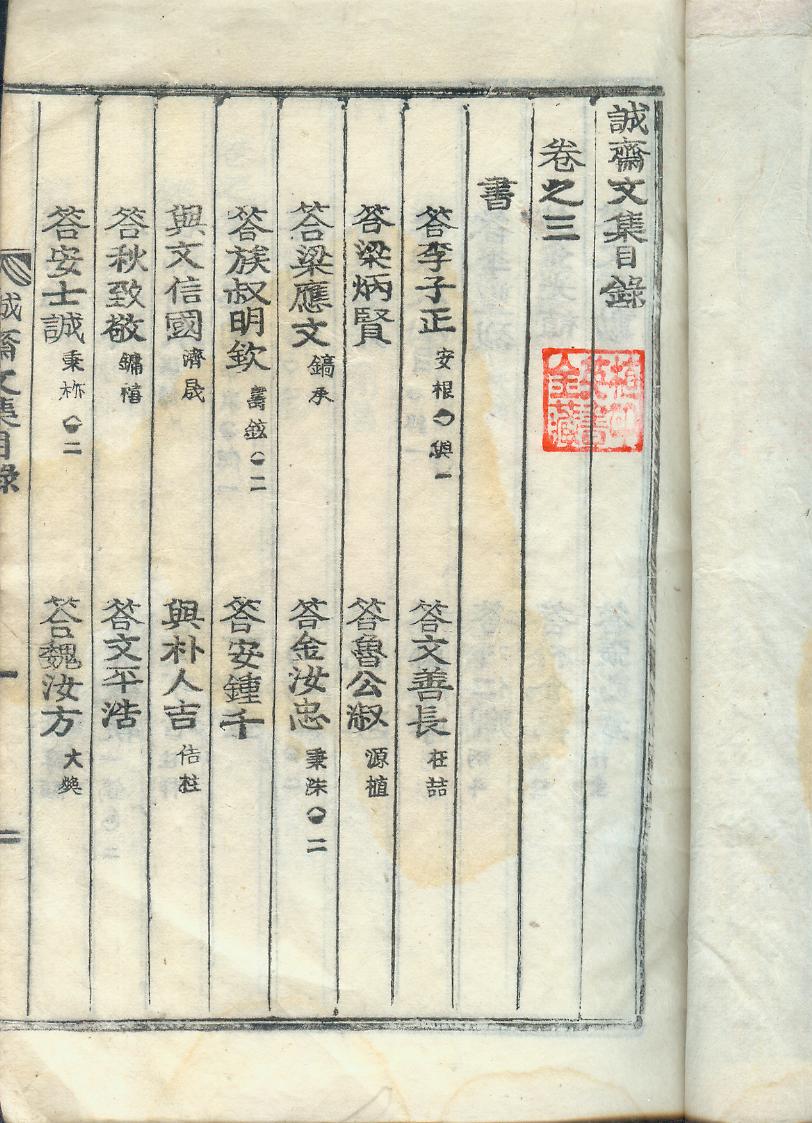 誠齋文集目錄
卷之三
書
答李子正 安根 ○ 與一
答文善長 在喆
答梁炳賢
答魯公淑 源植
答梁應文 鎬承
答金汝忠 秉洙 ○ 二
答族叔明欽 壽鉉 ○ 二
答安鍾千
與文信國 濟晟
與朴人吉 佶柱
答秋致敬 鏞禧
答文平浩
答安士誠 秉 ○ 二
答魏汝方 大煥
誠齋文集目錄 一